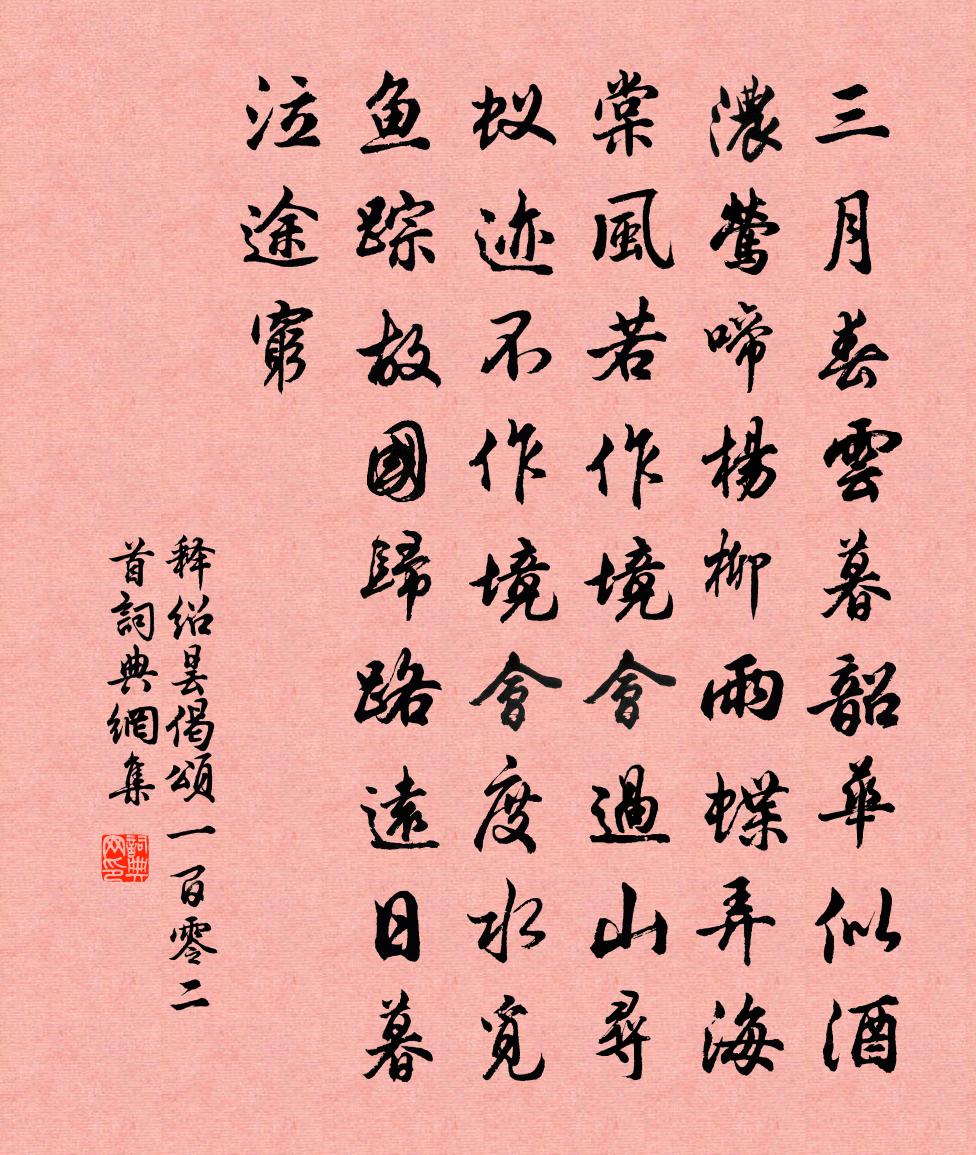 三月春雲暮韶華似酒
濃鶯啼楊柳雨蝶弄海
棠風若作境會過山尋
蚁迹不作境會度水覓
魚踪故國歸路遠日暮
泣途窮
释绍昙偈頌一百零二
首詞典網集
詞典网印